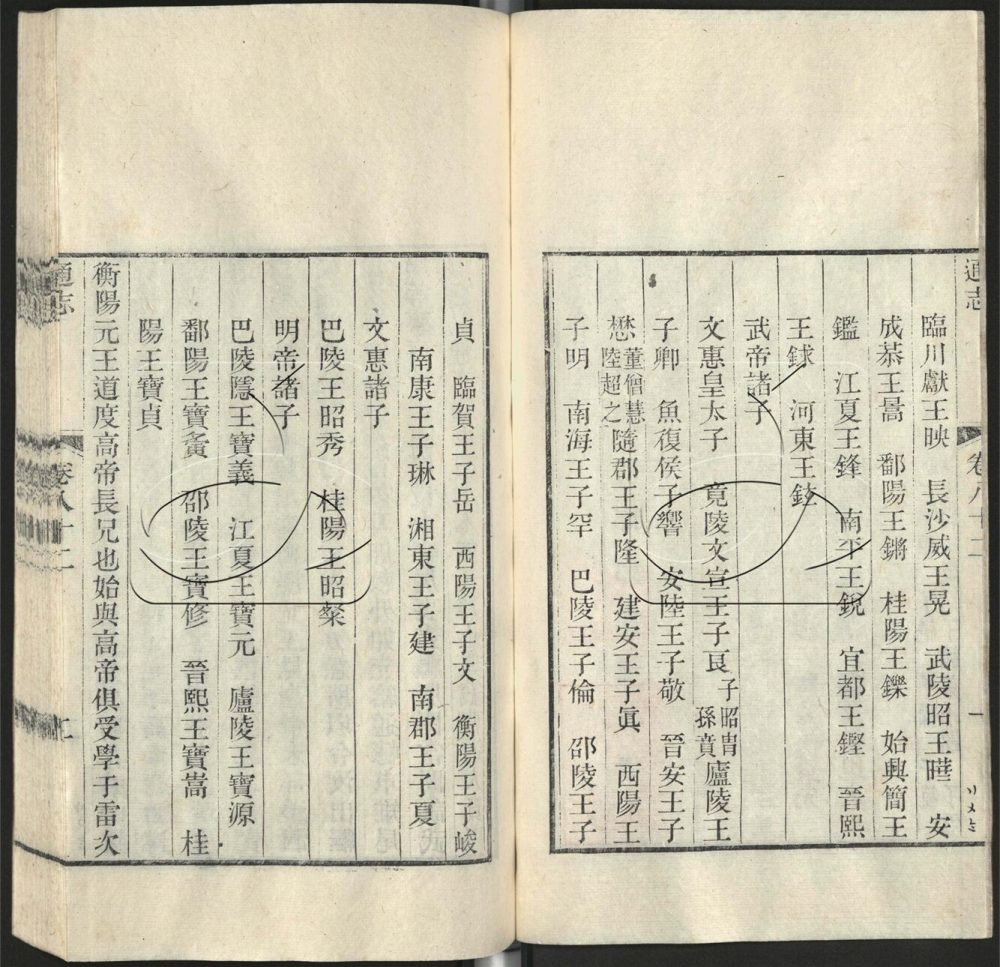 通志
卷八十二
一
臨川獻王映　長沙威王晃　武陵昭王曅　安
成恭王暠　鄱陽王鏘　桂陽王鑠　始興簡王
鑑　江夏王鋒　南平王銳　宜都王鏗　晉熙
王銶　河東王鉉
武帝諸子
文惠皇太子　竟陵文宣王子良　子昭胄　孫賁　廬陵王
子卿　魚復侯子響　安陸王子敬　晉安王子
懋　董僧慧　陸超之　隨郡王子隆　建安王子眞　西陽王
子明　南海王子罕　巴陵王子倫　邵陵王子
貞　臨賀王子岳　西陽王子文　衡陽王子峻
南康王子琳　湘東王子建　南郡王子夏
文惠諸子
巴陵王昭秀　桂陽王昭粲
明帝諸子
巴陵隱王寶義　江夏王寶元　廬陵王寶源
鄱陽王寶夤　邵陵王寶修　晉熙王寶嵩　桂
陽王寶貞
衡陽元王道度高帝長兄也始與高帝俱受學于雷次
通志
卷八十二